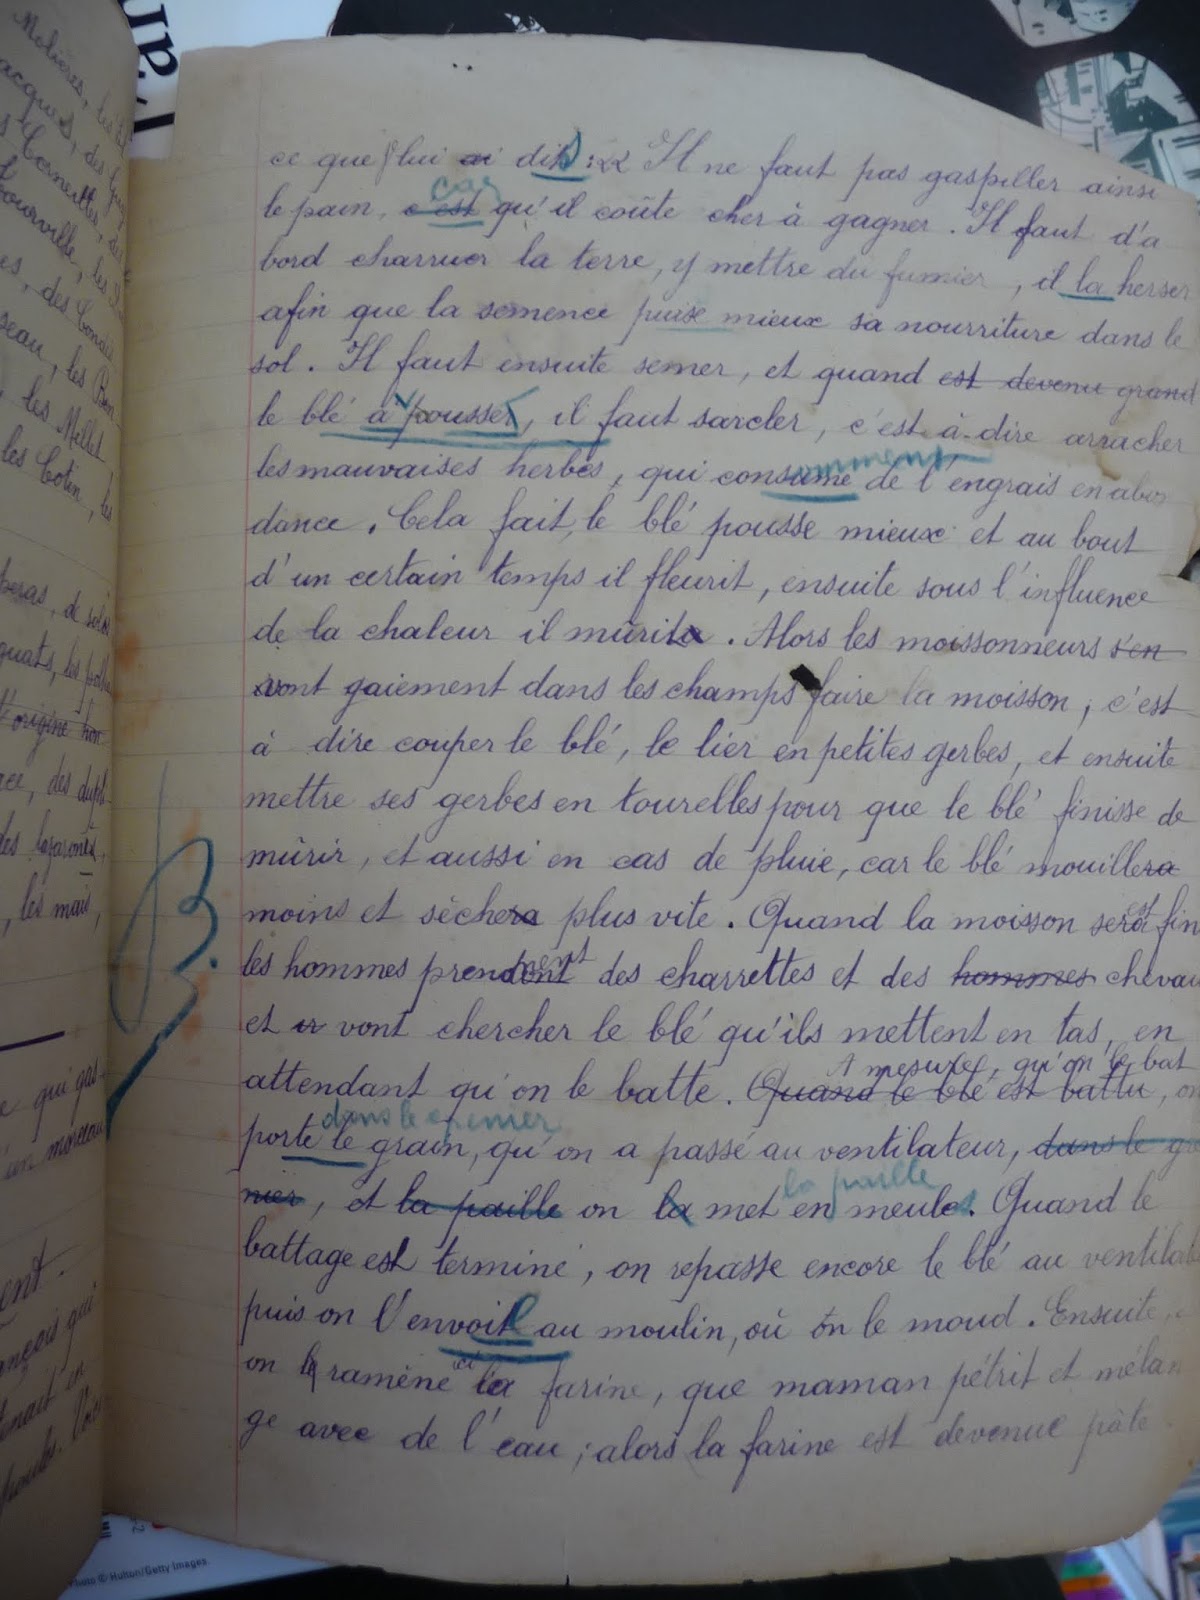 ce que j'lui ai dis : « Il ne faut pas gaspiller ainsi
car
le pain, c'est qu'il coûte cher à gagner. Il faut d'a
bord charruer la terre, y mettre du fumier, il la herser
afin que la semence puise mieux sa nourriture dans le
sol. Il faut ensuite semer, et quand est devenu grand
le blé à pousser, il faut sarcler, c'est à-dire arracher
les mauvaises herbes, qui consume de l'engrais en abon
dance. Cela fait, le blé pousse mieux et au bout
d'un certain temps il fleurit, ensuite sous l'influence
de la chaleur il mûrit. Alors les moissonneurs s'en
vont gaiement dans les champs faire la moisson, c'est
à dire couper le blé, le lier en petites gerbes, et ensuite
mettre ses gerbes en tourelles pour que le blé finisse de
mûrir, et aussi en cas de pluie, car le blé mouillera
moins et sèchera plus vite. Quand la moisson sera est fin
les hommes prennent des charrettes et des hommes chevau
et vont chercher le blé qu'ils mettent en tas, en
A mesure, qu'on le bat
attendant qu'on le batte. Quand le blé est battu, on
dans le grenier
porte le grain, qu'on a passé au ventilateur, dans le gre
la paille
nier, et la paille on la met en meules. Quand le
battage est terminé, on repasse encore le blé au ventilat
puis on l'envoie au moulin, où on le moud. Ensuite,
on ramène ici la farine, que maman pétrit et mélan
ge avec de l'eau ; alors la farine est devenue pâte
B.
Molières,
Corneilles,
des Condé
les Bon
les Millet,
les Cotin, les
l'origine
, les mais,
qui gas-
un morceau
Photo © Hulton/Getty Images